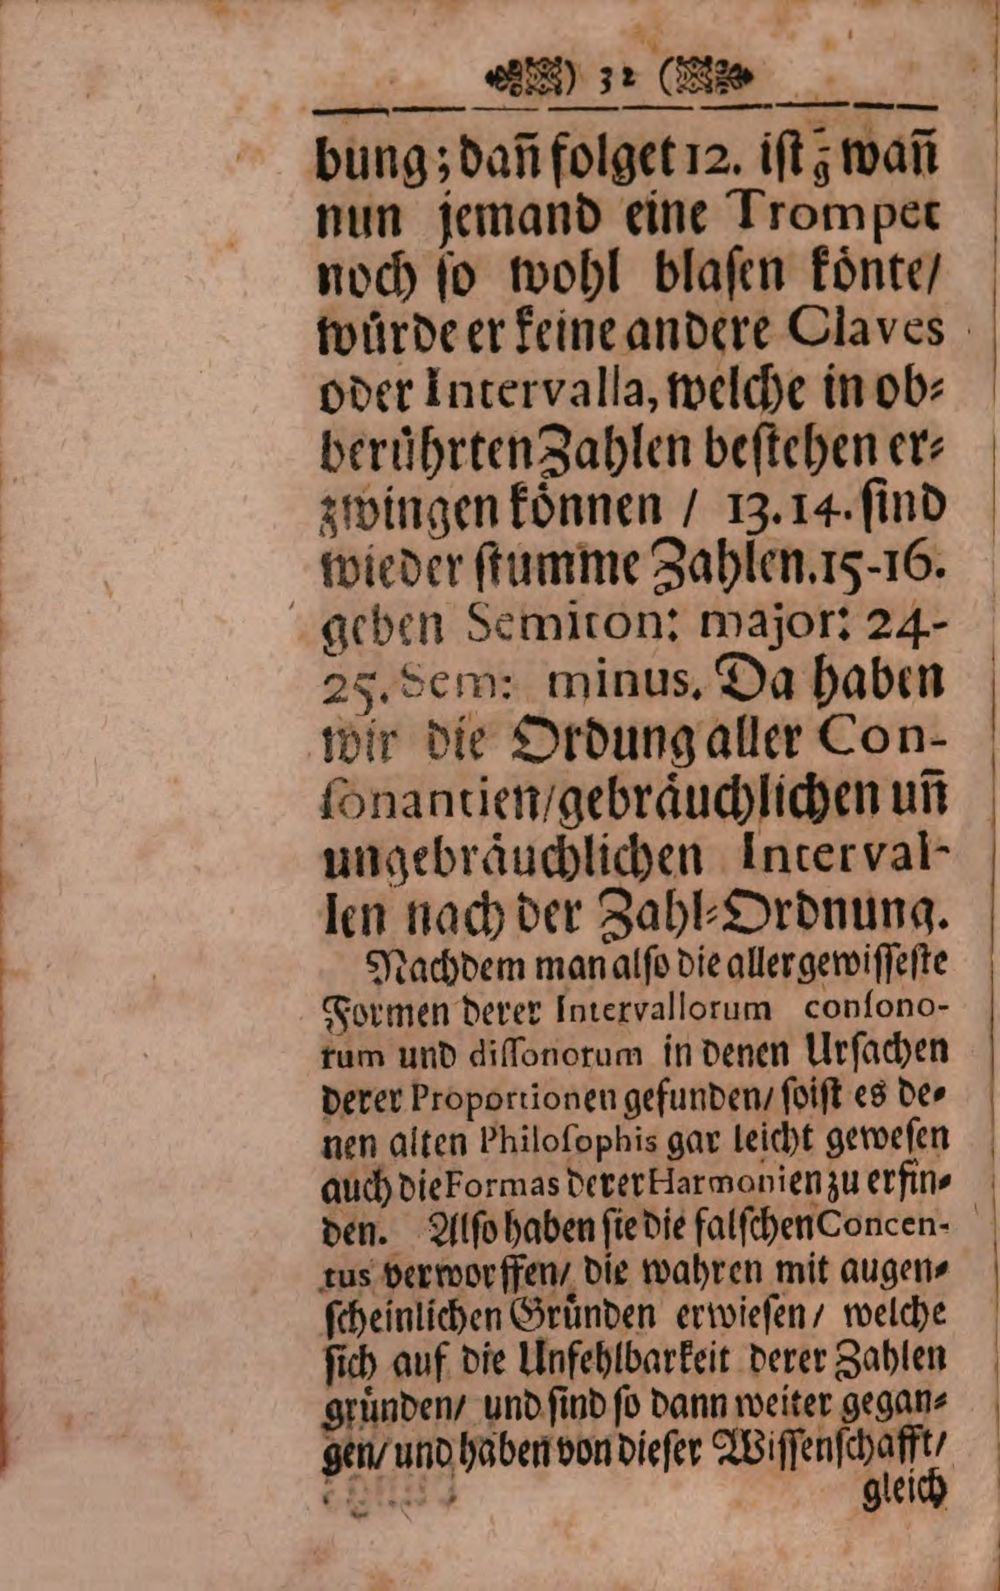 ) 32 (
bung; dañ folget 12. iſt g̅ wañ
nun jemand eine Trompet
noch ſo wohl blaſen koͤnte/
wuͤrde er keine andere Claves
oder Intervalla, welche in ob⸗
beruͤhrten Zahlen beſtehen er⸗
zwingen koͤnnen / 13. 14. ſind
wieder ſtumme Zahlen. 15-16.
geben Semiton: major: 24-
25. Sem: minus. Da haben
wir die Ordung aller Con-
ſonantien/ gebraͤuchlichen uñ
ungebraͤuchlichen Interval-
len nach der Zahl⸗Ordnung.
Nachdem man alſo die allergewiſſeſte
Formen derer Intervallorum conſono-
rum und diſſonorum in denen Urſachen
derer Proportionen gefunden/ ſo iſt es de⸗
nen alten Philoſophis gar leicht geweſen
auch die Formas derer Harmonien zu erfin⸗
den. Alſo haben ſie die falſchen Concen-
tus verworffen/ die wahren mit augen⸗
ſcheinlichen Gruͤnden erwieſen/ welche
ſich auf die Unfehlbarkeit derer Zahlen
gruͤnden/ und ſind ſo dann weiter gegan⸗
gen/ und haben von dieſer Wiſſenſchafft/
gleich